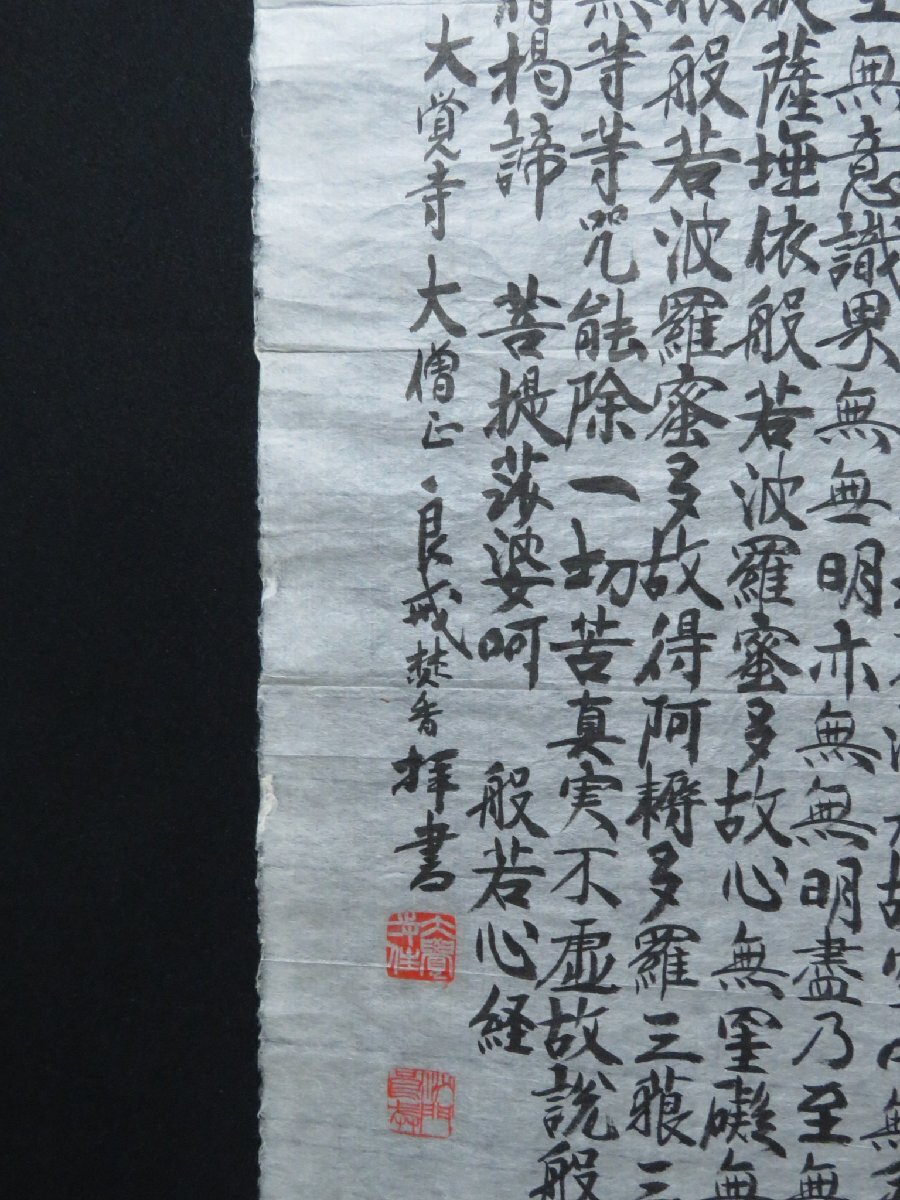 無意識界無無明亦無無明盡乃至無
薩埵依般若波羅蜜多故心無罣礙無
般若波羅蜜多故得阿耨多羅三藐三
無等等咒能除一切苦真実不虚故説般
揭諦 菩提莎婆呵 般若心経
大覚寺大僧正 良戒焚香拝書